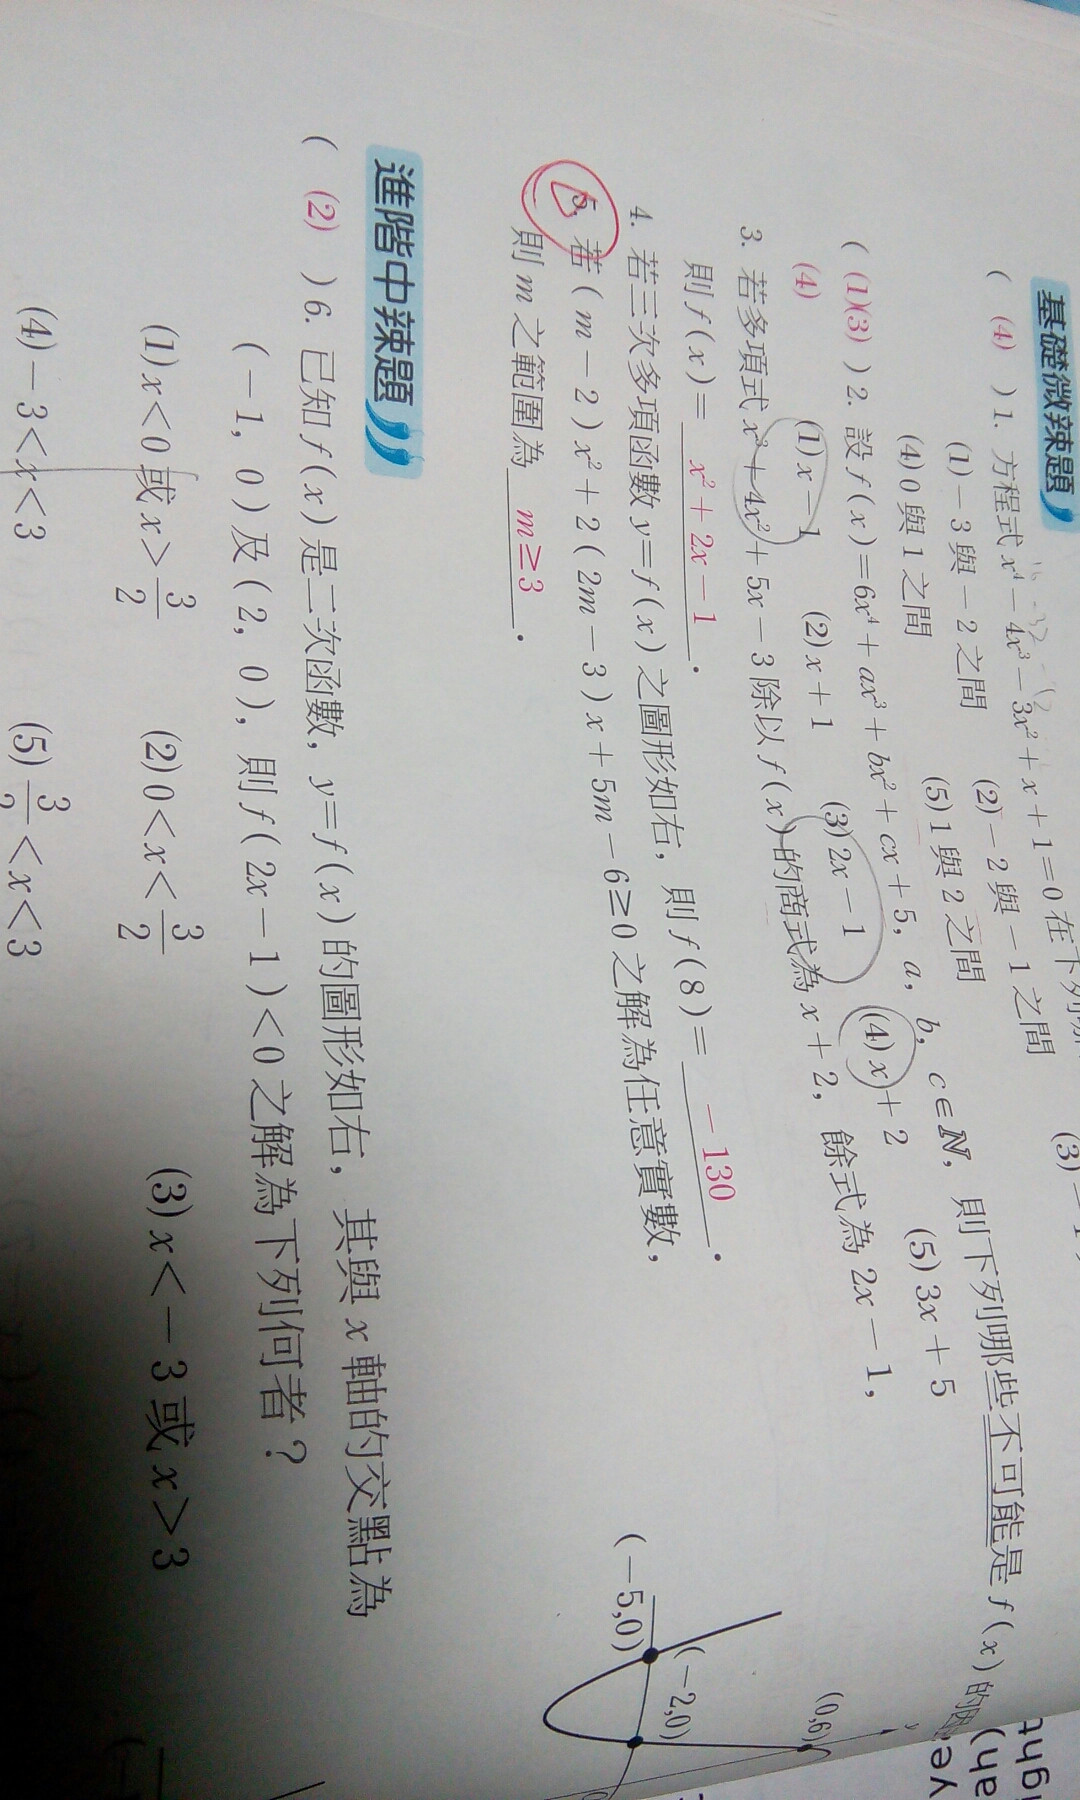 基礎微辣題
( (4) ) 1. 方程式 x⁴ − 4x³ − 3x² + x + 1 = 0 在下列哪
(1) −3 與 −2 之間 (2) −2 與 −1 之間 (3) −1
(4) 0 與 1 之間 (5) 1 與 2 之間
( (1)(3) ) 2. 設 f(x) = 6x⁴ + ax³ + bx² + cx + 5, a, b, c ∈ N, 則下列哪些不可能是 f(x) 的因
(4) (1) x − 1 (2) x + 1 (3) 2x − 1 (4) x + 2 (5) 3x + 5
3. 若多項式 x³ + 4x² + 5x − 3 除以 f(x) 的商式為 x + 2, 餘式為 2x − 1,
則 f(x) = x² + 2x − 1 .
4. 若三次多項函數 y = f(x) 之圖形如右, 則 f(8) = −130 .
5. 若 (m − 2)x² + 2(2m − 3)x + 5m − 6 ≥ 0 之解為任意實數,
則 m 之範圍為 m ≥ 3 .
(0,6)
y
(−2,0)
(−5,0)
進階中辣題
( (2) ) 6. 已知 f(x) 是二次函數, y = f(x) 的圖形如右, 其與 x 軸的交點為
(−1, 0) 及 (2, 0), 則 f(2x − 1) < 0 之解為下列何者？
(1) x < 0 或 x > 3/2 (2) 0 < x < 3/2 (3) x < −3 或 x > 3
(4) −3 < x < 3 (5) 3/2 < x < 3